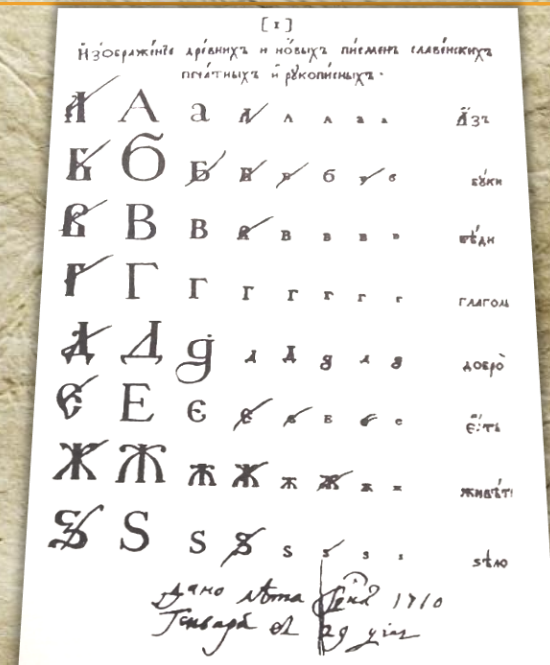 [ I ]
Изображенїе древнихъ и новыхъ писменъ славенскихъ
печатныхъ и рукописныхъ.
А А а А А А а а азъ
Б Б Б Б в б у б буки
В В В В В в в в вѣди
Г Г Г Г Г Г г г глаголь
Д Д д д Д д д д добро
Є Е є є е е е е єсть
Ж Ж ж Ж ж Ж ж ж живѣт
Ѕ Ѕ ѕ Ѕ ѕ ѕ ѕ ѕ ѕѣло
Дано лѣта 1710
Генваря 29